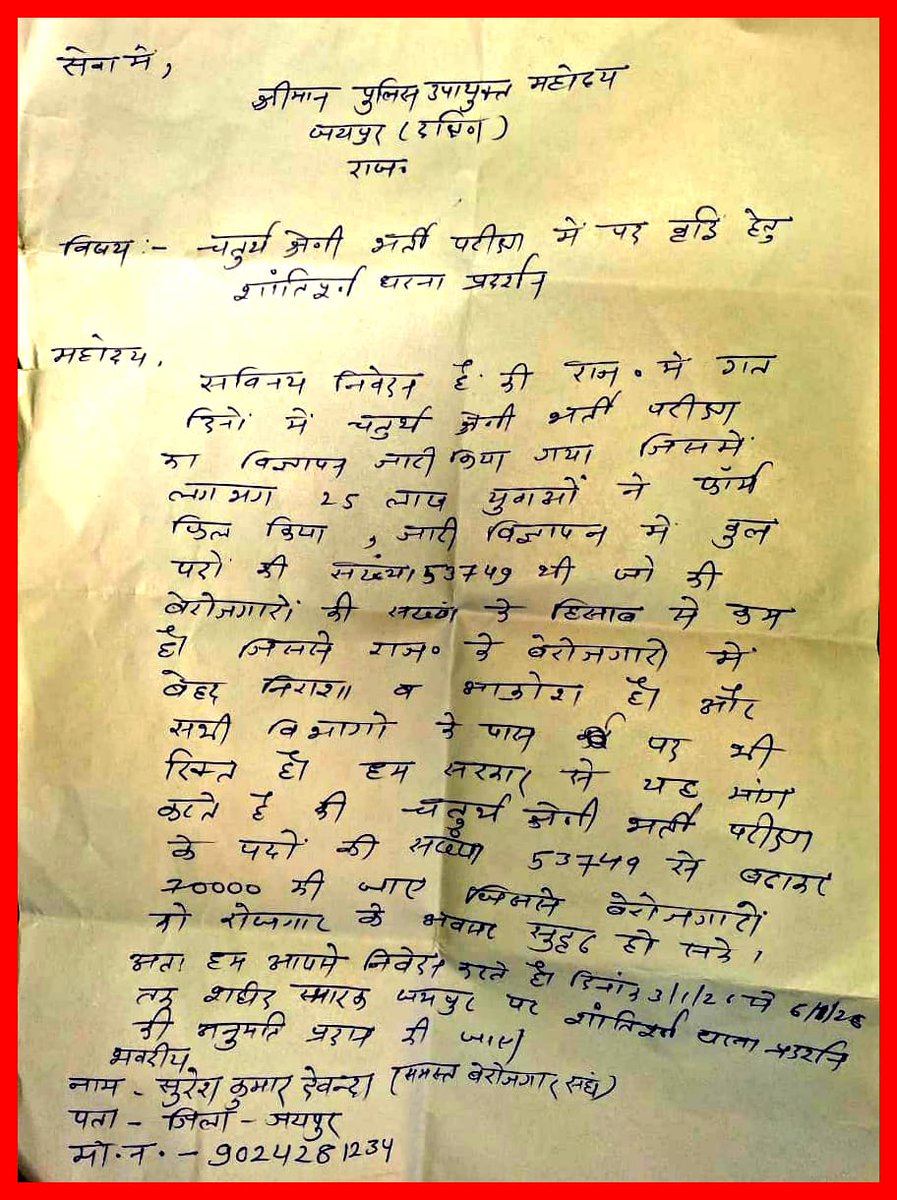 सेवा में,
श्रीमान पुलिस उपायुक्त महोदय
जयपुर (दक्षिण)
राज०
विषय :- चतुर्थ श्रेणी भर्ती परीक्षा में पद वृद्धि हेतु
शांतिपूर्ण धरना प्रदर्शन
महोदय,
सविनय निवेदन है की राज० में गत
दिनों में चतुर्थ श्रेणी भर्ती परीक्षा
का विज्ञापन जारी किया गया जिसमें
लगभग 25 लाख युवाओं ने फॉर्म
फिल किया, जारी विज्ञापन में कुल
पदों की संख्या 53749 थी जो की
बेरोजगारों की संख्या के हिसाब से कम
है। जिससे राज० के बेरोजगारो में
बेहद निराशा व आक्रोश है। और
सभी विभागो के पास पद भी
रिक्त है। हम सरकार से यह मांग
करते है की चतुर्थ श्रेणी भर्ती परीक्षा
के पदों की संख्या 53749 से बढाकर
70000 की जाए जिससे बेरोजगारों
को रोजगार के अवसर सुदृढ हो सके।
अतः हम आपसे निवेदन करते है। दिनांक 3/1/26 से 6/1/26
तक शहीद स्मारक जयपुर पर शांतिपूर्ण धरना प्रदर्शन
की अनुमति प्रदान की जाए।
भवदीय
नाम - सुरेश कुमार देवन्दा (समस्त बेरोजगार संघ)
पता - जिला - जयपुर
मो.न. - 9024281234